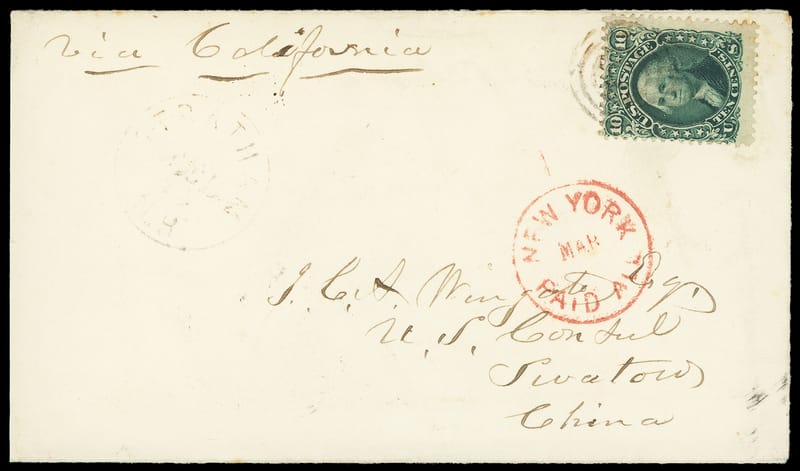 via California
10 10
U.S. POSTAGE
TEN CENTS
U S
NEW YORK
MAR
PAID A
J. C. A. Wingate Esqr
U. S. Consul
Swatow
China